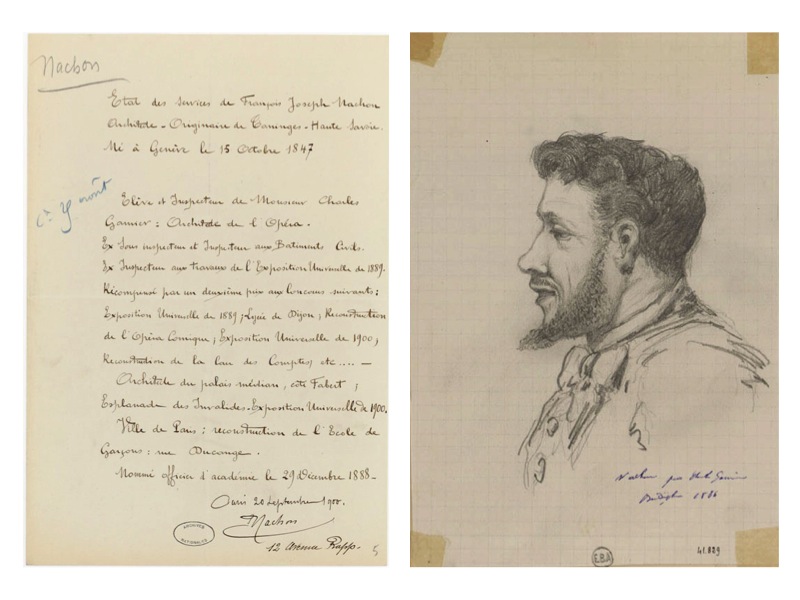 Nachon
Etat des services de François Joseph Nachon
Architecte - Originaire de Taninges - Haute Savoie.
Né à Genève le 15 Octobre 1847
Elève et Inspecteur de Monsieur Charles
Garnier : Architecte de l'Opéra.
Ex Sous inspecteur et Inspecteur aux Batiments Civils.
Ex Inspecteur aux travaux de l'Exposition Universelle de 1889.
Récompensé par un deuxième prix aux Concours suivants :
Exposition Universelle de 1889 ; Lycée de Dijon ; Reconstruction
de l'Opéra Comique ; Exposition Universelle de 1900 ;
Reconstruction de la Cour des Comptes, etc .... —
Architecte du palais médian, coté Fabert ;
Esplanade des Invalides - Exposition Universelle de 1900.
Ville de Paris : reconstruction de l'Ecole de
Garçons : rue Ducange.
Nommé officier d'académie le 29 Décembre 1888 -
Paris 20 Septembre 1900.
Nachon
12 Avenue Rapp.
5
ARCHIVES
NATIONALES
par
1886
E.B.A
41.829